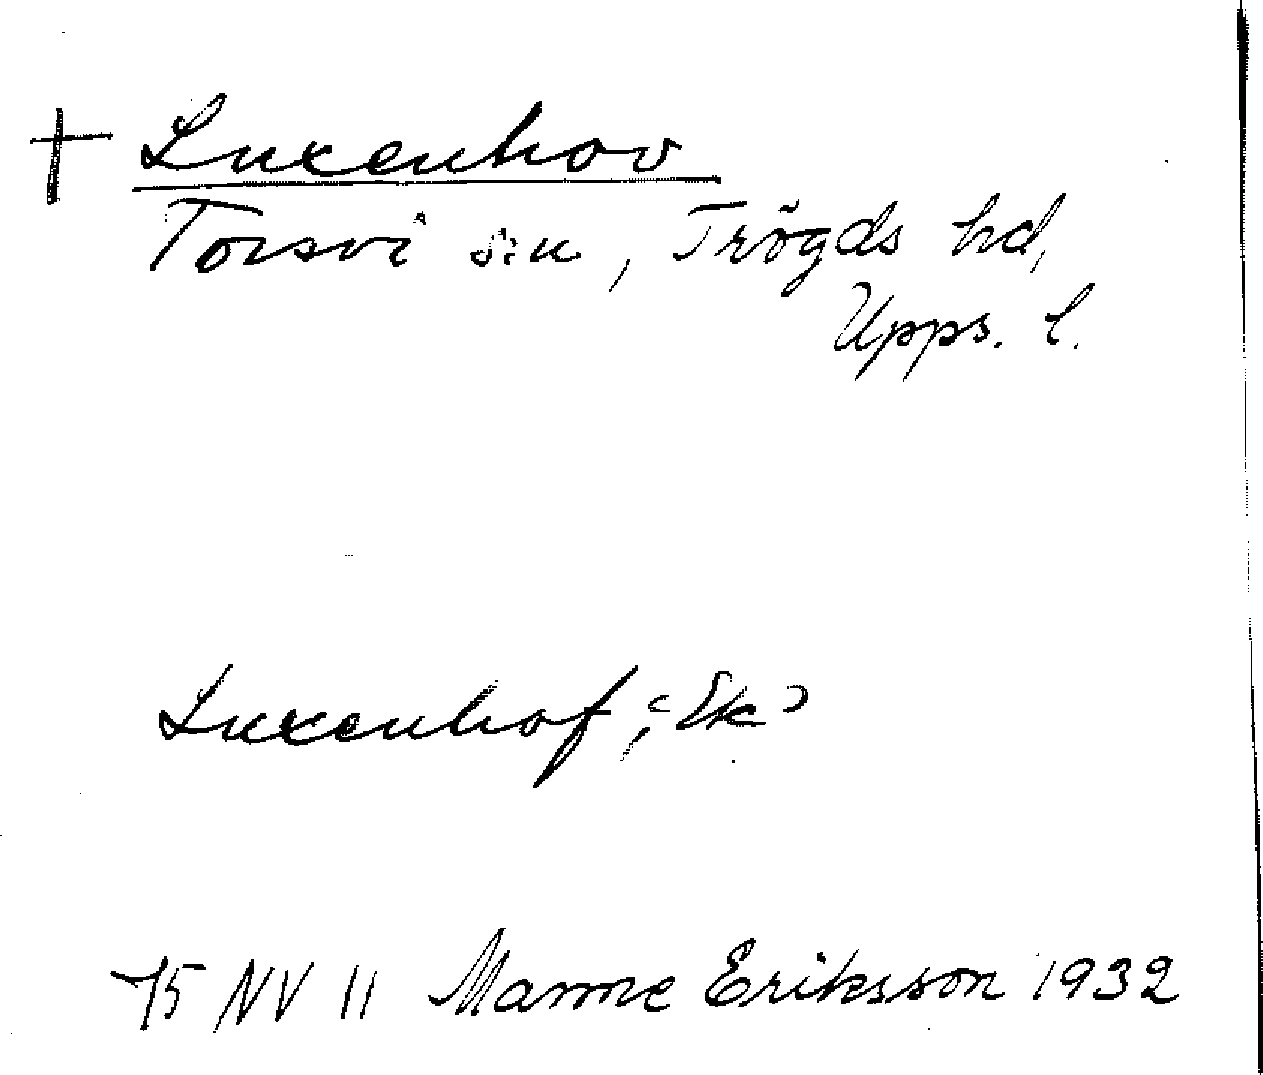 † Luxenhov
Torsvi sn, Trögds hd,
Upps. l.
Luxenhof, "Ek"
75 NV 11 Manne Eriksson 1932